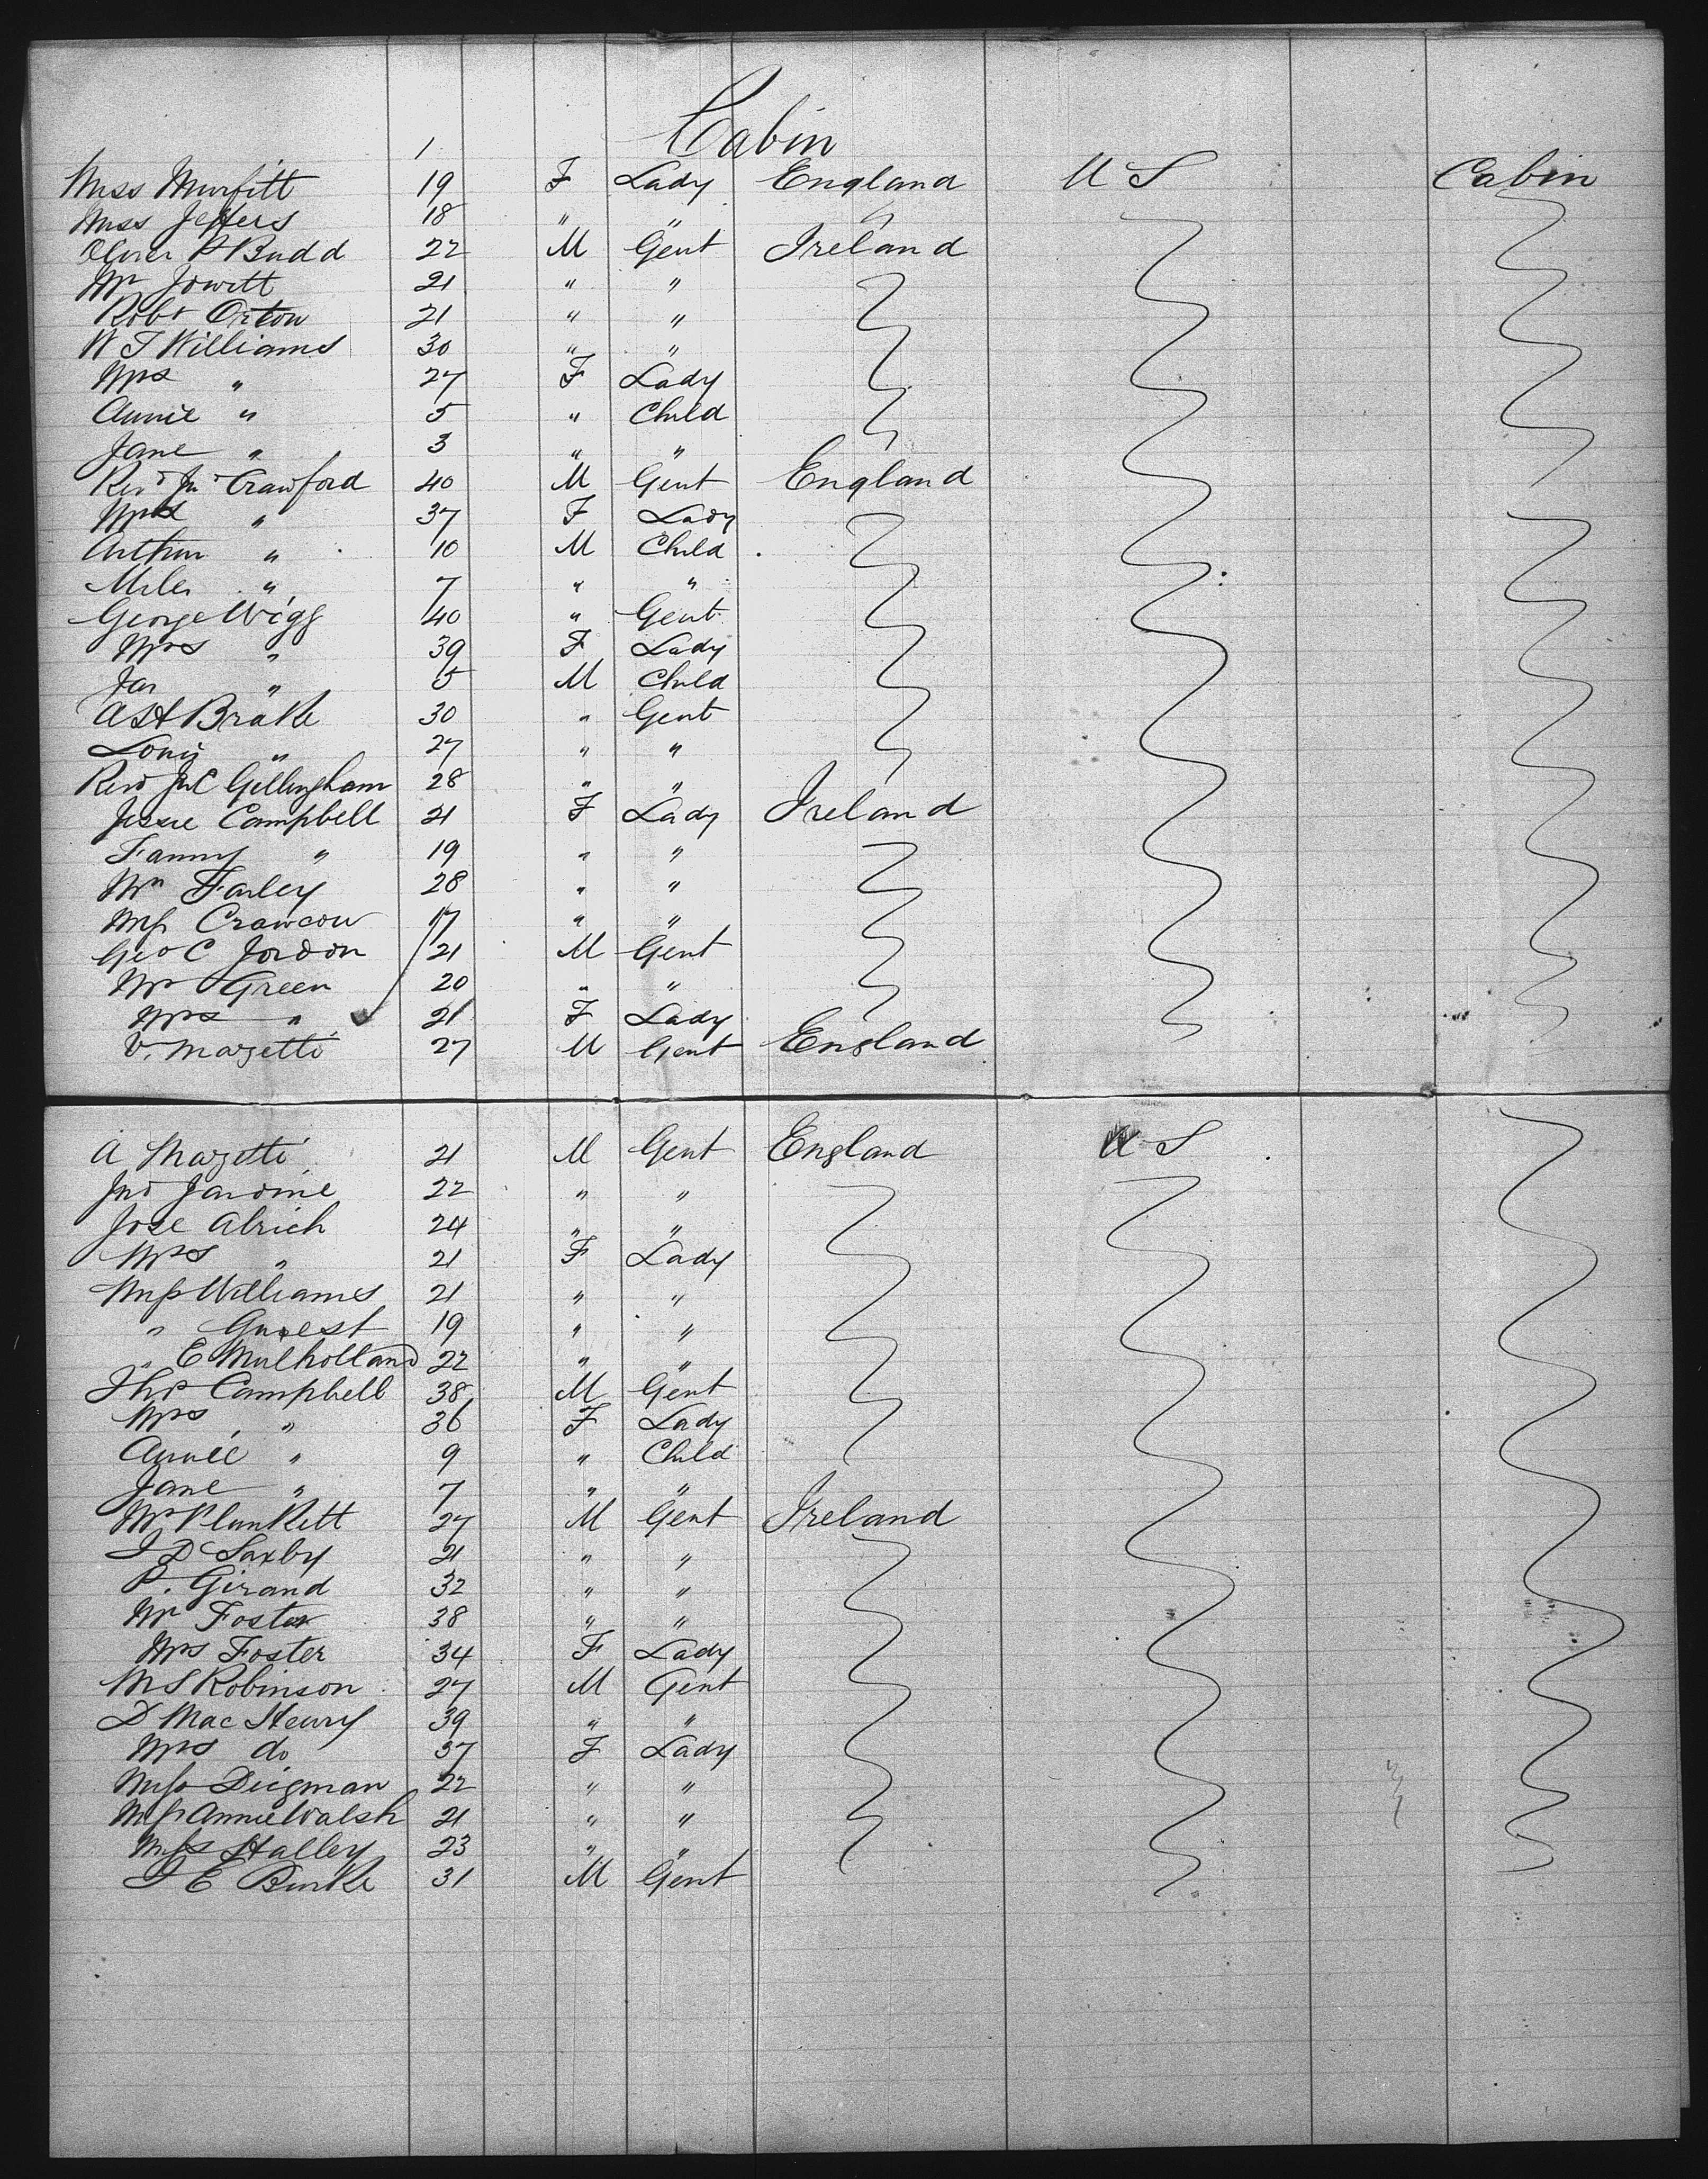 Cabin
1
Miss Murfitt 19 F Lady England U S Cabin
Miss Jeffers 18 " "
Oliver P Budd 22 M Gent Ireland
Mr Jowett 21 " "
Robt Orton 21 " "
W T Williams 30 " "
Mrs " 27 F Lady
Annie " 5 " Child
Jane " 3 " "
Revd Jno Crawford 40 M Gent England
Mrs " 37 F Lady
Arthur " 10 M Child
Miles " 7 " "
George Wigg 40 " Gent
Mrs " 39 F Lady
Jas " 5 M Child
A St Brake 30 " Gent
" 27 " "
Revd Jno C Gillingham 28 " "
Jessie Campbell 21 F Lady Ireland
Fanny " 19 " "
Farley 28 " "
Miss Crawcow 17 " "
Geo C Jordon 21 M Gent
Mr Green 20 " "
Mrs " 21 F Lady
V. Mazetti 27 M Gent England
A Mazetti 21 M Gent England U S
Jno Jardine 22 " "
Jose Alrich 24 " "
Mrs " 21 F Lady
Miss Williams 21 " "
" Guest 19 " "
" E Mulholland 22 " "
Thos Campbell 38 M Gent
Mrs " 36 F Lady
Annie " 9 " Child
Jane " 7 " "
Mr Plunkett 27 M Gent Ireland
J D Saxby 21 " "
P. Girand 32 " "
Mr Foster 38 " "
Mrs Foster 34 F Lady
M S Robinson 27 M Gent
D Mac Henry 39 " "
Mrs do 37 F Lady
Miss Diegman 22 " "
Miss Annie Walsh 21 " "
Miss Halley 23 " "
J E Burke 31 M Gent